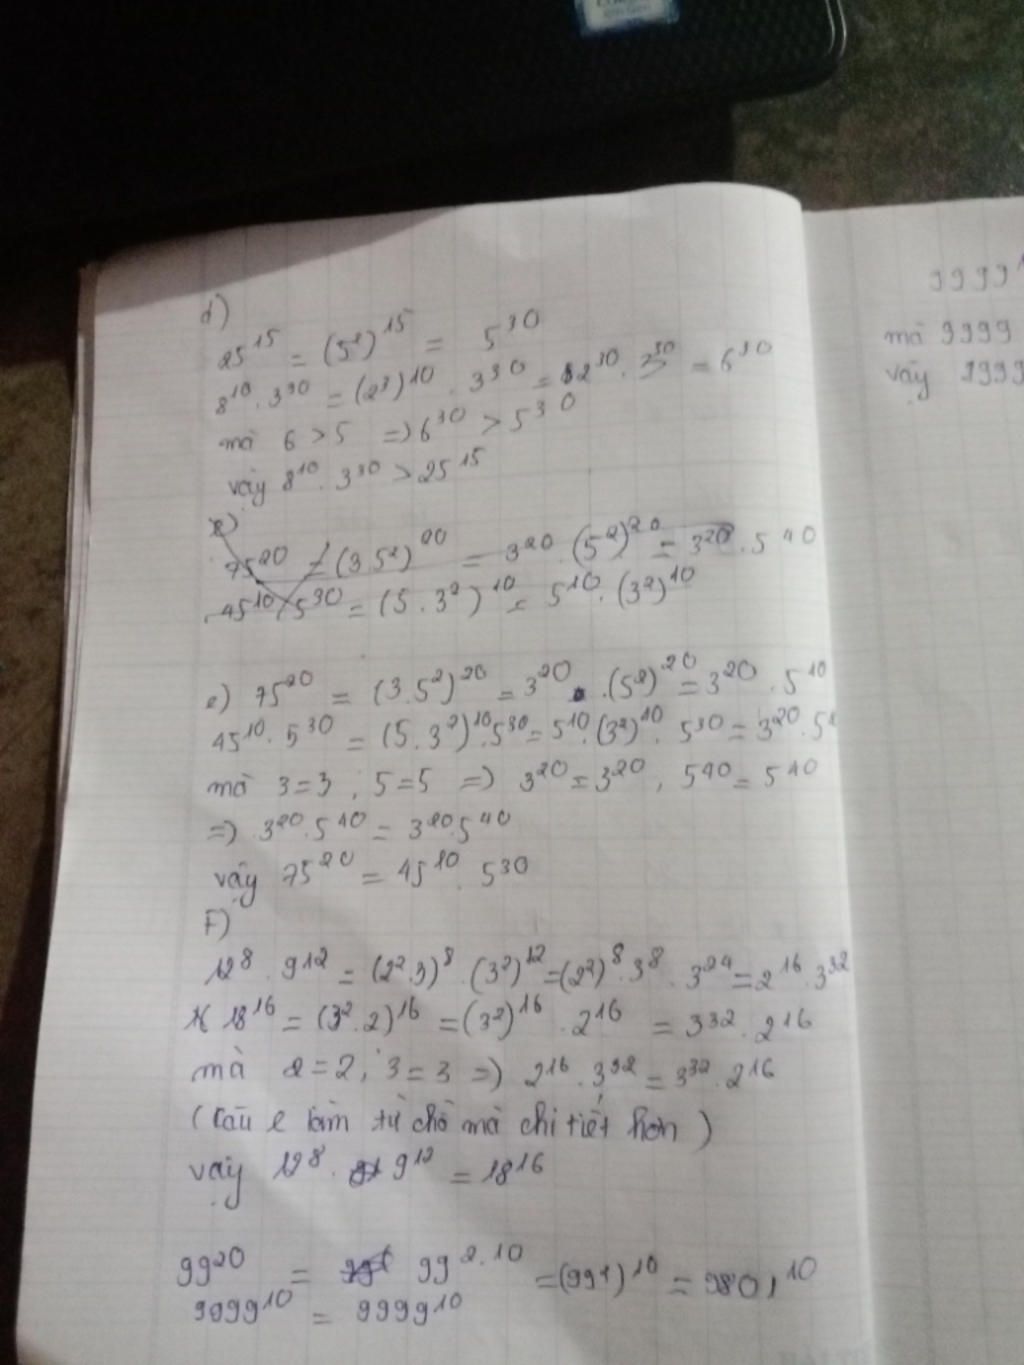 d)
25^15 = (5^2)^15 = 5^30
8^10 . 3^30 = (2^3)^10 . 3^30 = 2^30 . 3^30 = 6^30
mà 6 > 5 => 6^30 > 5^30
vậy 8^10 . 3^30 > 25^15
e)
75^20 = (3.5^2)^20 = 3^20 . (5^2)^20 = 3^20 . 5^40
45^10 . 5^30 = (5 . 3^2)^10 = 5^10 . (3^2)^10
e) 75^20 = (3.5^2)^20 = 3^20 . (5^2)^20 = 3^20 . 5^40
45^10 . 5^30 = (5.3^2)^10 . 5^30 = 5^10 . (3^2)^10 . 5^30 = 3^20 . 5
mà 3=3 ; 5=5 => 3^20 = 3^20 , 5^40 = 5^40
=> 3^20 . 5^40 = 3^20 . 5^40
vậy 75^20 = 45^10 . 5^30
F)
12^8 . 9^12 = (2^2.3)^8 . (3^2)^12 = (2^2)^8 . 3^8 . 3^24 = 2^16 . 3^32
18^16 = (3^2.2)^16 = (3^2)^16 . 2^16 = 3^32 . 2^16
mà 2=2 ; 3=3 => 2^16 . 3^32 = 3^32 . 2^16
(Câu e làm từ chỗ mà chi tiết hơn)
vậy 12^8 . 9^12 = 18^16
99^20 = 99^2.10 = (99^2)^10 = 9801^10
9999^10 = 9999^10
9999
mà 9999
vậy 9999